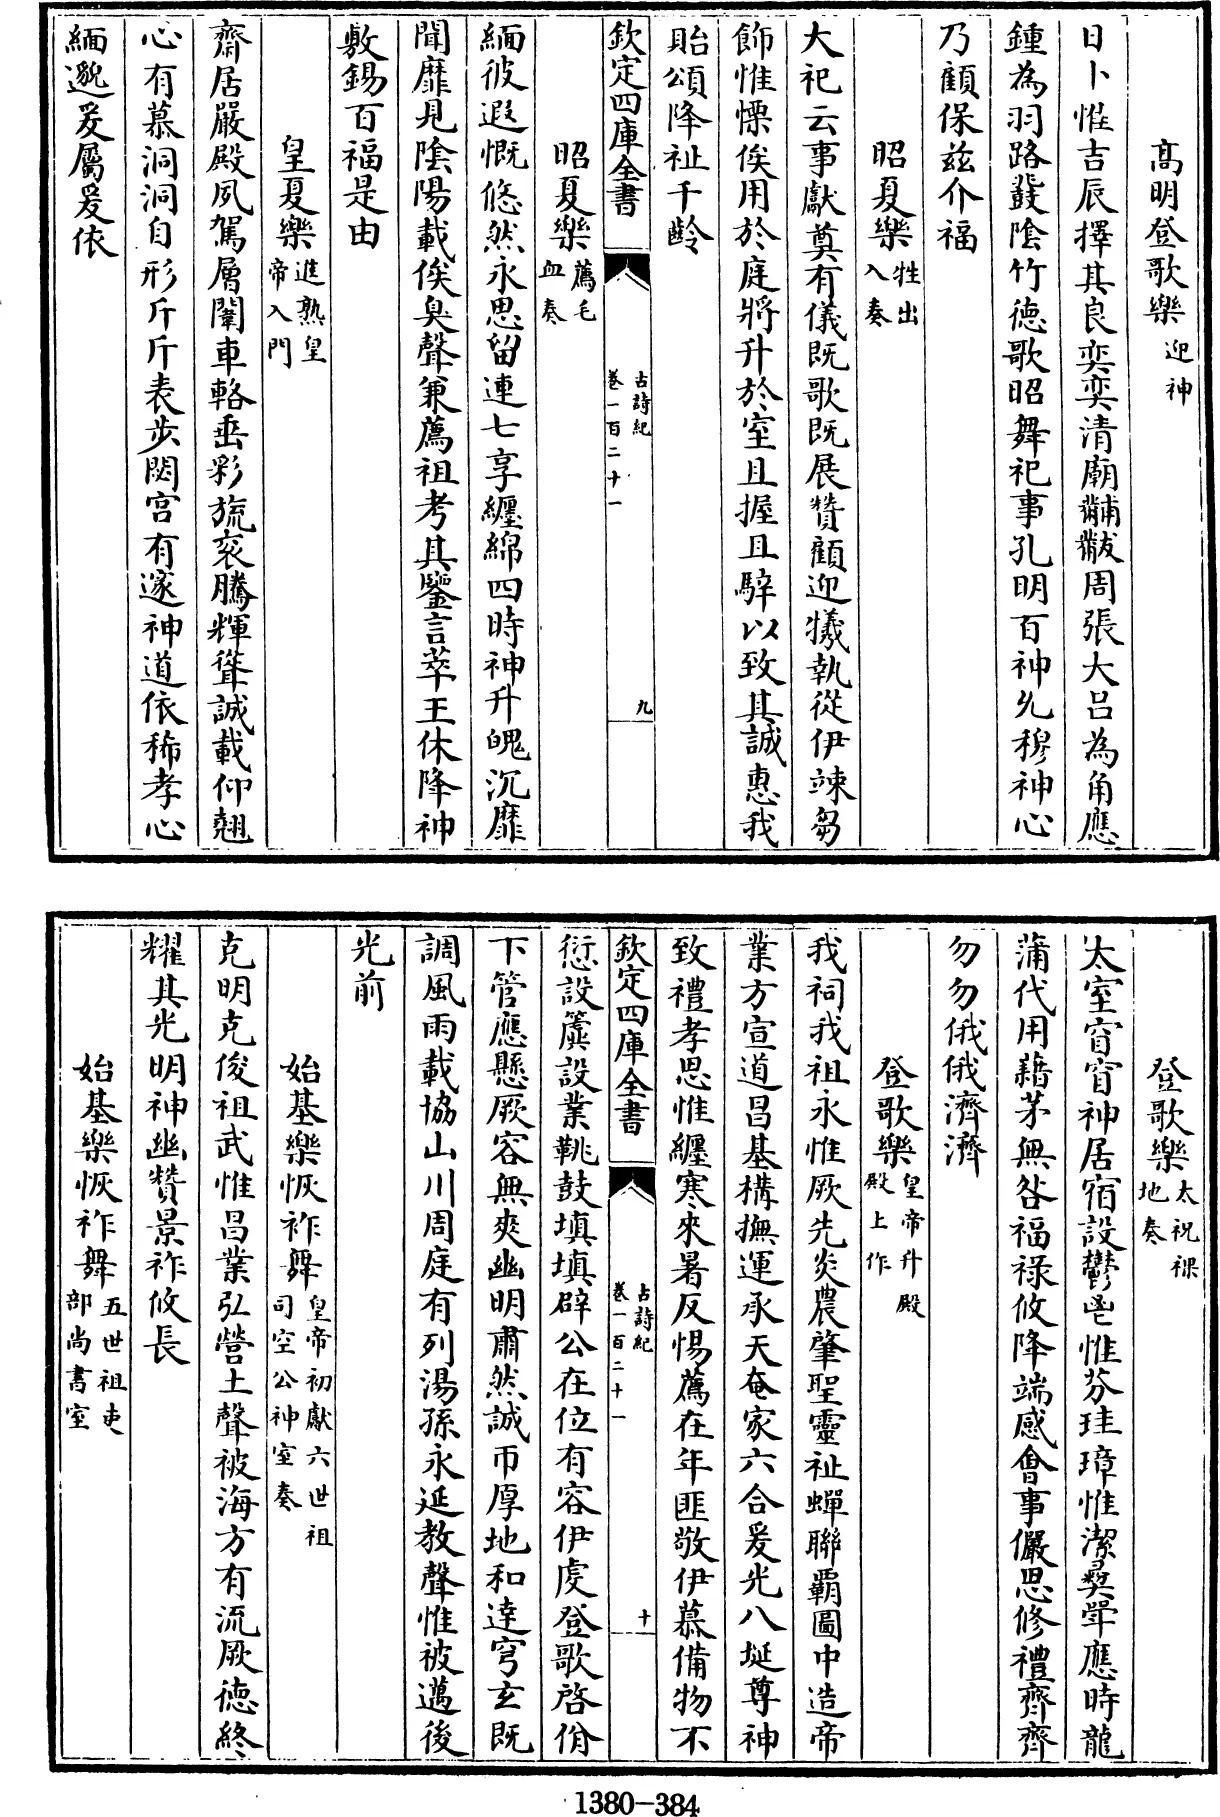 高明登歌樂迎神
日卜惟吉辰擇其良奕奕清廟黼黻周張大呂為角應
鍾為羽路鼗陰竹德歌昭舞祀事孔明百神允穆神心
乃顧保兹介福
昭夏樂牲出入奏
大祀云事獻奠有儀既歌既展贊顧迎犧執從伊竦芻
飾惟慄俟用於庭將升於室且握且騂以致其誠惠我
貽頌降祉千齡
欽定四庫全書 古詩紀 卷一百二十一 九
昭夏樂薦毛血奏
緬彼遐慨悠然永思留連七享纏綿四時神升魄沉靡
聞靡見陰陽載俟臭聲兼薦祖考其鑒言萃王休降神
敷錫百福是由
皇夏樂進熟皇帝入門
齋居嚴殿夙駕層闈車輅垂彩旒衮騰輝聳誠載仰翹
心有慕洞洞自形斤斤表步閟宫有邃神道依俙孝心
緬邈爰屬爰依
登歌樂太祝祼地奏
太室窅窅神居宿設鬱鬯惟芬珪璋惟潔彛斝應時龍
蒲代用藉茅無咎福禄攸降端感會事儼思修禮齊齊
勿勿俄俄濟濟
登歌樂皇帝升殿殿上作
我祠我祖永惟厥先炎農肇聖靈祉蟬聯霸圖中造帝
業方宣道昌基構撫運承天奄家六合爰光八埏尊神
致禮孝思惟纏寒來暑反惕薦在年匪敬伊慕備物不
欽定四庫全書 古詩紀 卷一百二十一 十
愆設簴設業鞉鼓填填辟公在位有容伊虔登歌啓佾
下管應懸厥容無爽幽明肅然誠帀厚地和達穹玄既
調風雨載協山川周庭有列湯孫永延教聲惟被邁後
光前
始基樂恢祚舞皇帝初獻六世祖司空公神室奏
克明克俊祖武惟昌業弘營土聲被海方有流厥德終
耀其光明神幽贊景祚攸長
始基樂恢祚舞五世祖吏部尚書室
1380-384